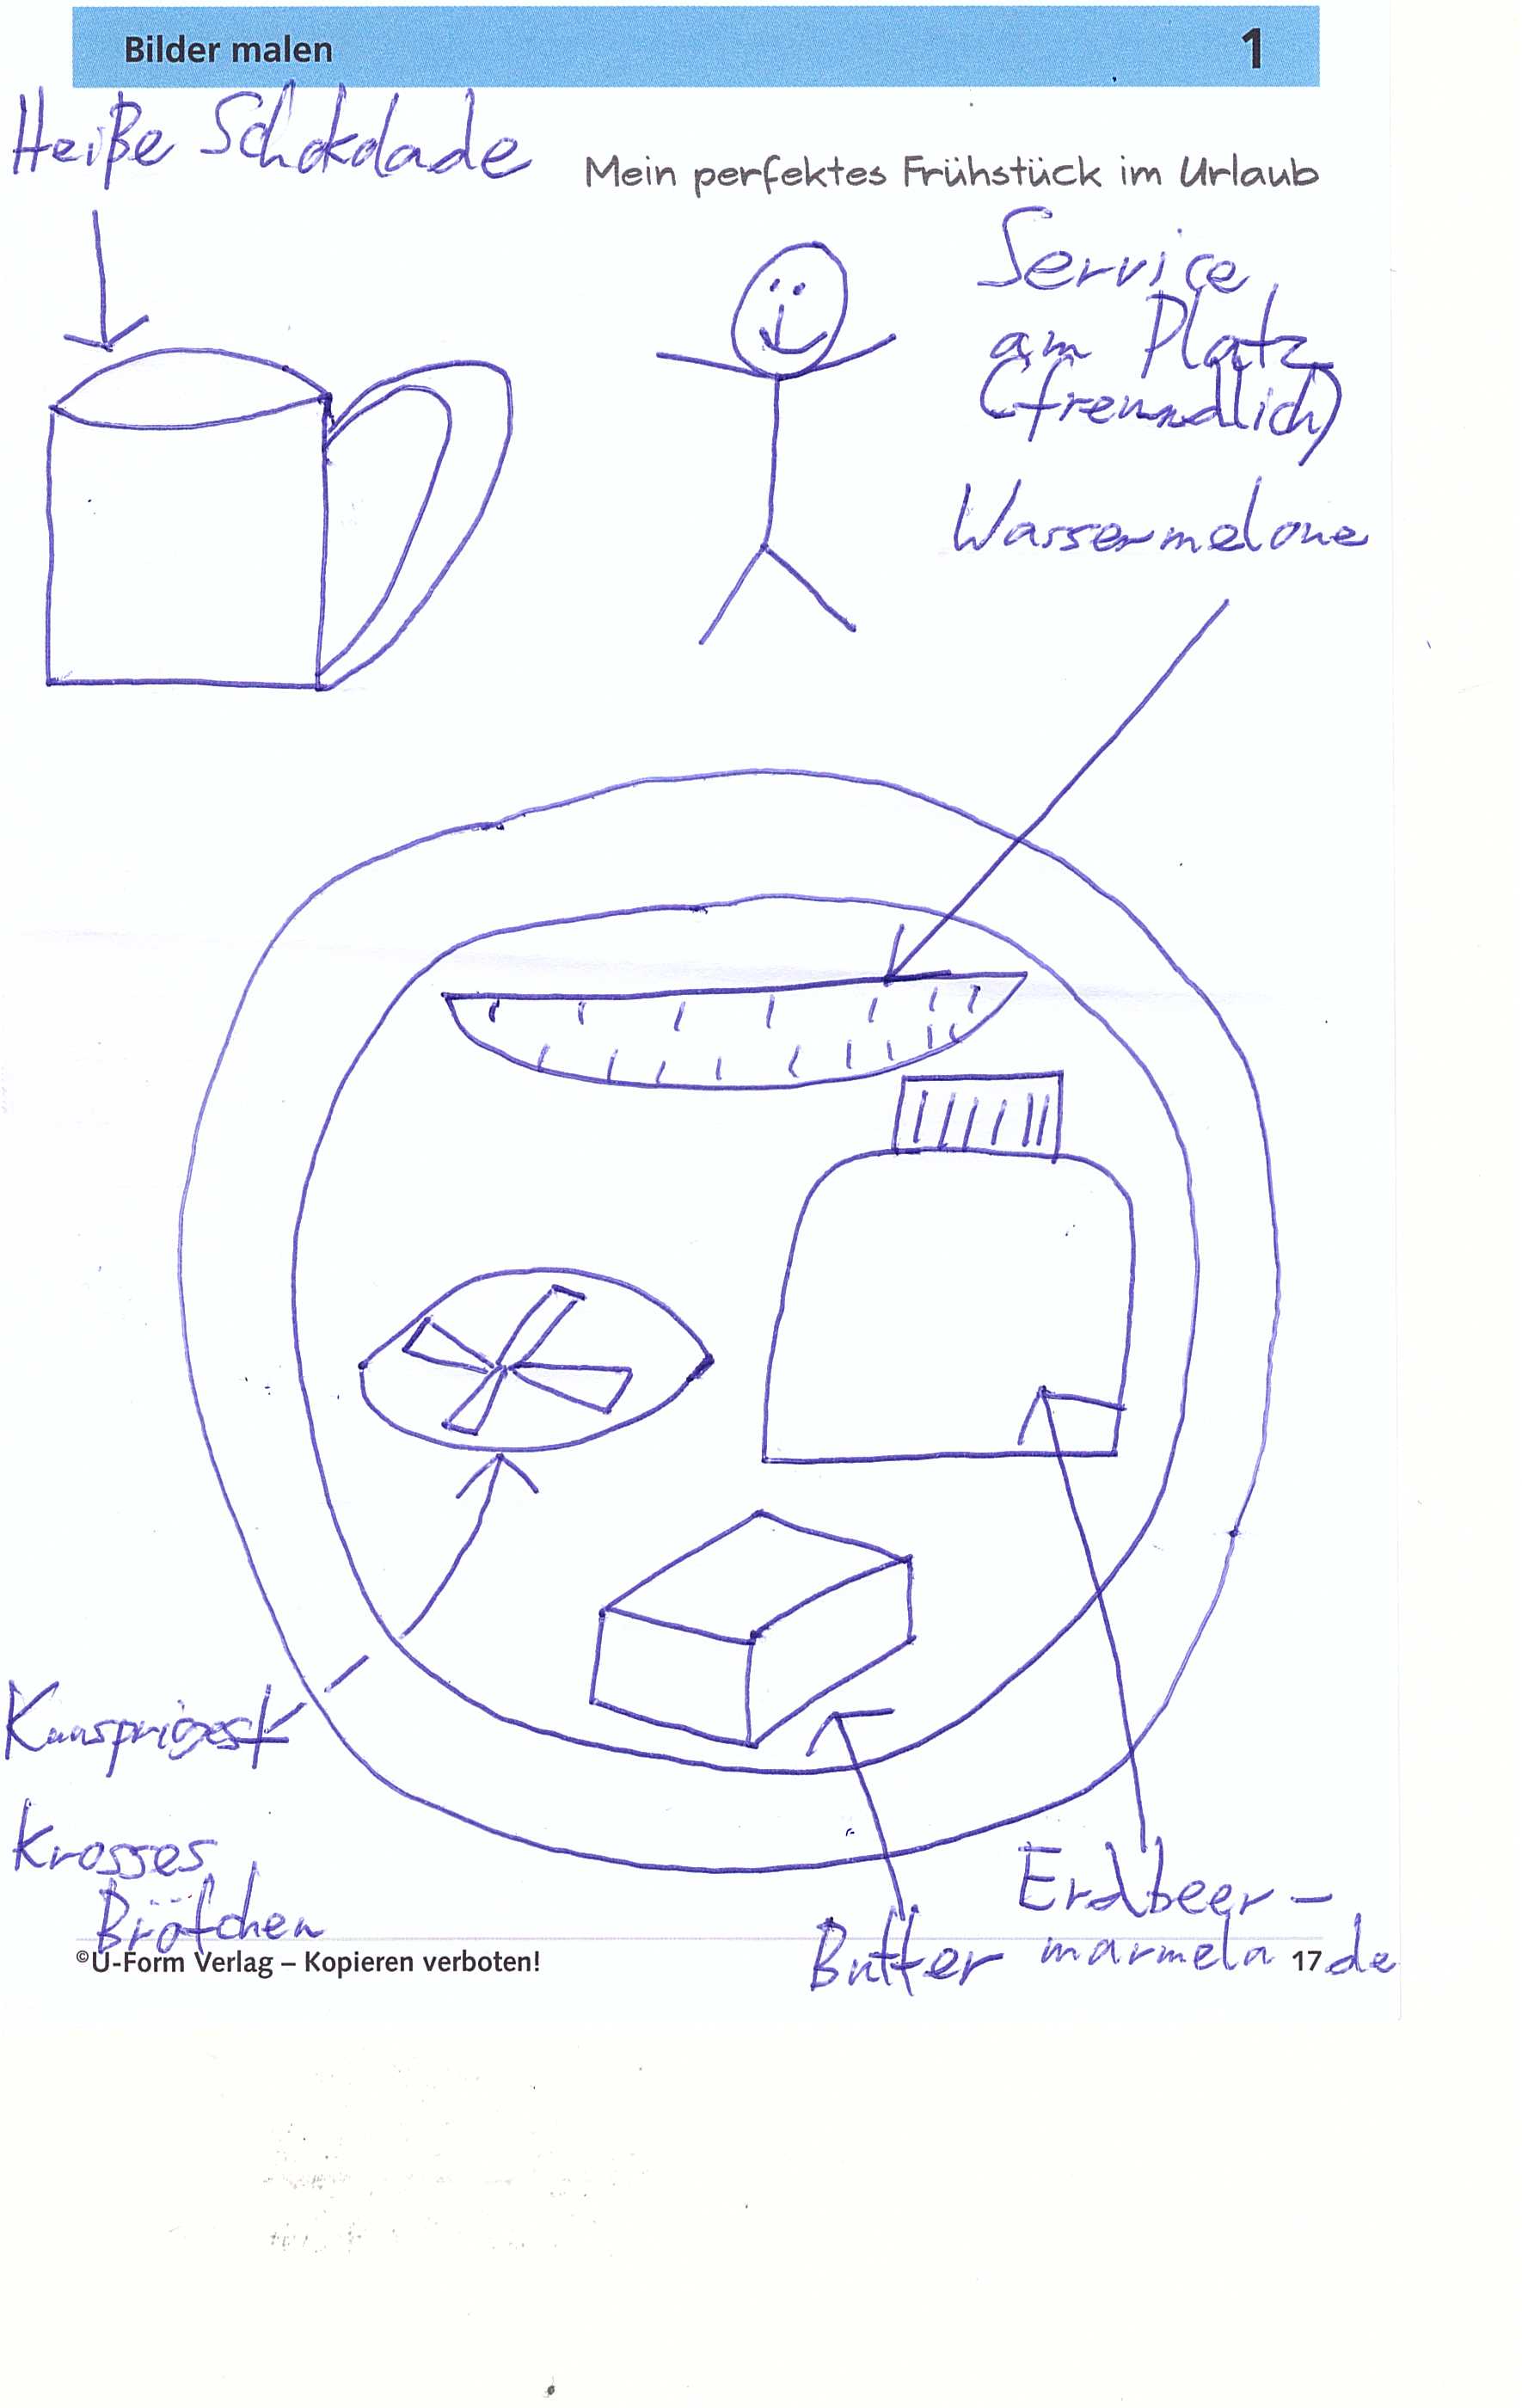 Bilder malen 1
Heiße Schokolade
Mein perfektes Frühstück im Urlaub
Service
am Platz
(freundlich)
Wassermelone
Krosses
Brötchen
Butter
Erdbeer-
marmelade
©U-Form Verlag – Kopieren verboten! 17